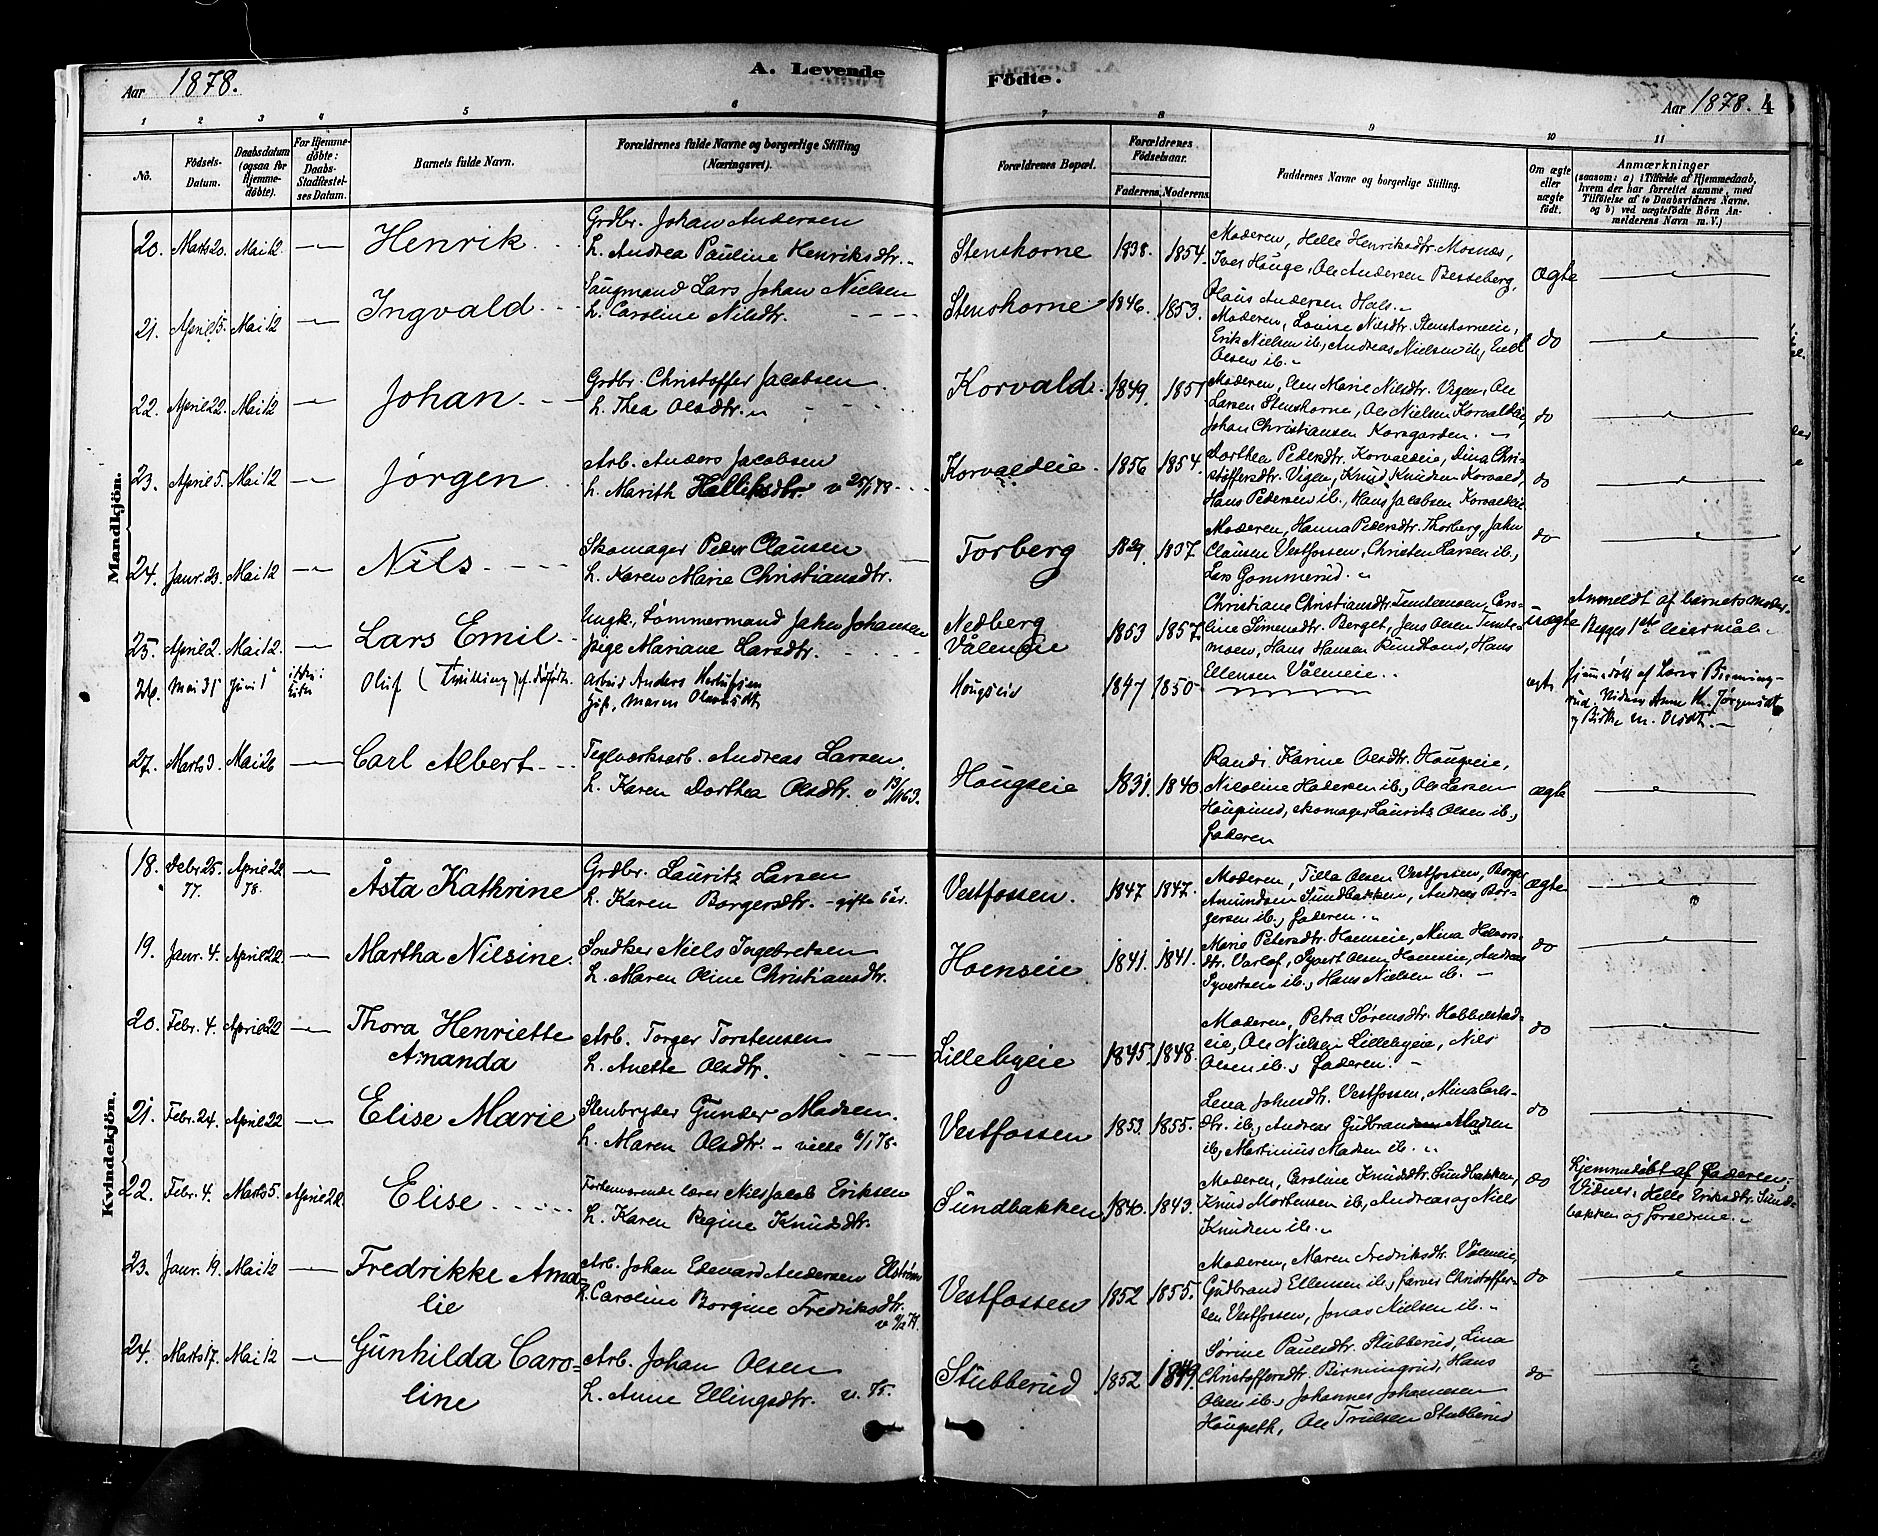 Aar 1878.
A. Levende
Födte.
Aar 1878. 4
1 2 3 4 5 6 7 8 9 10 11
No.
Födsels-
Datum.
Daabsdatum
(ogsaa for
Hjemme-
döbte).
For Hjemme-
döbte:
Daabs-
Stadfæstel-
ses Datum.
Barnets fulde Navn.
Forældrenes fulde Navne og borgerlige Stilling
(Næringsvei).
Forældrenes Bopæl.
Forældrenes
Födselsaar.
Faderens. Moderens.
Faddernes Navne og borgerlige Stilling.
Om ægte
eller
uægte
födt.
Anmærkninger
(saasom: a) i Tilfælde af Hjemmedaab,
hvem der har forrettet samme, med
Tilföielse af to Daabsvidners Navne.
og b) ved uægtefödte Börn An-
melderens Navn m. V.)
Mandkjön.
20. Marts 20. Mai 12. Henrik
Grdbr. Johan Andersen
h. Andrea Pauline Henriksdtr.
Stenshorne 1838. 1854.
Moderen, Helle Henriksdtr. Mosnæs,
Iver Houge, Ole Andersen Besseberg,
Hans Andersen Hals.
Ægte
21. April 15. Mai 12 Ingvald
Saugmand Lars Johan Nielsen
h. Caroline Nilsdtr.
Stenshorne 1846. 1853.
Moderen, Lovise Nilsdtr. Stenshorneie,
Erik Nielsen ib., Andreas Nielsen ib.,
Olsen ib.
do
22. April 22. Mai 12 Johan
Grdbr. Christoffer Jacobsen
h. Thea Olsdtr.
Korvald 1849. 1851
Moderen, Marie Nilsdtr. Vigen, Ole
Larsen Stenshorne, Ole Nielsen Korvaldeie,
Johan Christiansen Korsgarden.
do
23. April 5. Mai 12 Jørgen
Arb. Anders Jacobsen
h. Marith Halliksdtr. v
Korvaldeie 1856 1854.
Dorthea Pedersdtr. Korvaldeie, Dina Chri-
stoffersdtr. Vigen, Knud Knudsen Korvald,
Hans Pedersen ib., Hans Jacobsen Korvaldeie
do
24. Janr. 23. Mai 12 Nils
Skomager Peder Clausen
h. Karen Marie Christiansdtr.
Torberg
Moderen, Hanna Pedersdtr. Thorberg, John
Clausen Vestfossen, Christen Larsen ib.,
Lars Gommerud.
do
25. April 2. Mai 12. Lars Emil
Ungk. Tømmermand John Johansen
Pige Mariane Larsdtr.
Nedberg
Vålen
1853 1857.
Christiane Christiansdtr. Temtemoen, Caro-
line Simensdtr. Berget, Jens Olsen Temte-
moen, Hans Hansen, Hans
Ellensen Vålmeie.
uægte
Anmeldt af barnets moder.
Begges 1ste leiermål.
26. Mai 31 Juni 1 Oluf (Tvilling)
Arbeid. Anders
Gift, Maren
Hougseie 1847 1850
ægte
Anne M. Jørgensdt
27. Marts 3. Mai 26 Carl Albert
Teglværksarb. Andreas Larsen.
h. Karen Dorthea Olsdtr. v 13/11 63.
Hougseie 1831 1840.
Randi Karine Olsdtr. Hougseie,
Nicoline Hadersen ib., Ole Larsen
Hougsund, skomager Lauritz Olsen ib.,
Faderen
ægte
Kvindekjön.
18. Debr. 25. 77. April 22 78. Åsta Kathrine
Grdbr. Lauritz Larsen
h. Karen Borgersdtr. - gifte 6 år.
Vestfossen. 1847 1847.
Moderen, Tilla Olsen Vestfossen, Borger
Amundsen Sundbakken, Andreas Bor-
gersen ib., Faderen.
ægte
19. Janr. 4. April 22. Martha Nilsine.
Snedker Niels Ingebretsen
h. Maren Oline Christiansdtr.
Hoenseie 1841. 1841.
Marie Petersdtr. Hoenseie, Mina Halvors-
dtr. Varlof, Syvert Olsen Hoenseie, Anders
Syvertsen ib., Hans Nielsen ib.
do
20. Febr. 4. April 22 Thora Henriette
Amanda
Arb. Torger Torstensen
h. Anette Olsdtr.
Lillebyeie 1845. 1848.
Moderen, Petra Sørensdtr. Hobbelstad-
eie, Ole Nielsen Lillebyeie, Nils
Olsen ib., Faderen.
do
21. Febr. 24. April 22 Elise Marie
Stenbryder Gunder Madsen.
h. Maren Olsdtr. - viede 6/1 78.
Vestfossen 1853. 1855.
Lena Johnsdtr. Vestfossen, Mina Carls-
dtr. ib., Andreas Gudbrandsen Madsen
ib., Martinius Madsen ib.
do
22. Febr. 4. Marts 5. April 22. Elise
Forhenværende lærer Nils Jacob Eriksen
h. Karen Regine Knudsdtr.
Sundbakken 1840. 1843.
Moderen, Caroline Knudsdtr. Sundbakken,
Knud Mortensen ib., Andreas og Niels
Knudsen ib.
do
Hjemmedöbt af Faderen;
Vidner: Helle Eriksdtr. Sund-
bakken og forældrene.
23. Janr. 19. Mai 12 Fredrikke Ama-
lie
Arb. Johan Edevard Andersen Elstrøm
h. Caroline Borgine Fredriksdtr.
Vestfossen 1852 1855.
Moderen, Maren Fredriksdtr. Vålmeie,
Gudbrand Ellensen ib., farver Christoffer-
sen Vestfossen, Jonas Nielsen ib.
do
24. Marts 17. Mai 12 Gunhilda Caro-
line
Arb. Johan Olsen
h. Anne Ellingsdtr. v. 75.
Stubberud 1852 1849.
Sørine Paulsdtr. Stubberud, Lina
Christoffersdtr. Birmingrud, Hans
Olsen ib., Johannes Johannesen
Ole Trulsen Stubberud
do